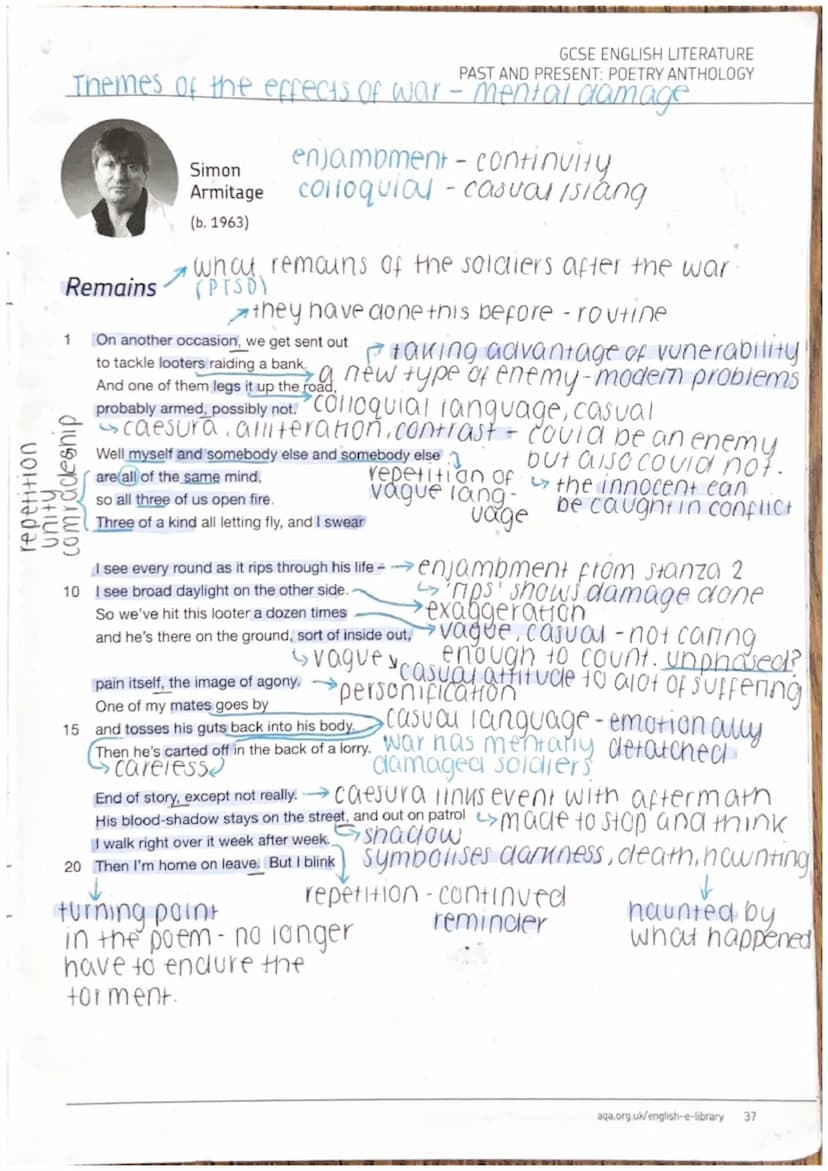 GCSE ENGLISH LITERATURE
PAST AND PRESENT: POETRY ANTHOLOGY
Themes of the effects of war - mental damage
Simon
Armitage
(b. 1963)
enjambment - continuity
colloquial - casual/slang
Remains
what remains of the soldiers after the war.
(PTSD)
they have done this before - routine
1 On another occasion, we get sent out
to tackle looters raiding a bank.
And one of them legs it up the road,
probably armed, possibly not.
taking advantage of vunerability
a new type of enemy - modern problems
colloquial language, casual
caesura, alliteration, contrast - could be an enemy
but also could not.
the innocent can
be caught in conflict
Well myself and somebody else and somebody else
are all of the same mind,
so all three of us open fire.
Three of a kind all letting fly, and I swear
repetition of
vague lang-
uage
repetition
unity
comradeship
I see every round as it rips through his life –
10 I see broad daylight on the other side.
So we've hit this looter a dozen times
and he's there on the ground, sort of inside out,
enjambment from stanza 2
'rips' shows damage done
exaggeration
vague, casual - not caring
enough to count. unphased?
vague
casual attitude to alot of suffering
pain itself, the image of agony.
One of my mates goes by
15 and tosses his guts back into his body.
Then he's carted off in the back of a lorry.
personification
casual language - emotionally
detatched
war has mentally
damaged soldiers
careless
End of story, except not really.
His blood-shadow stays on the street, and out on patrol
I walk right over it week after week.
20 Then I'm home on leave. But I blink
caesura links event with aftermath
made to stop and think
shadow
symbolises darkness, death, haunting
turning point
in the poem - no longer
have to endure the
torment.
repetition - continued
reminder
haunted by
what happened
aqa.org.uk/english-e-library 37